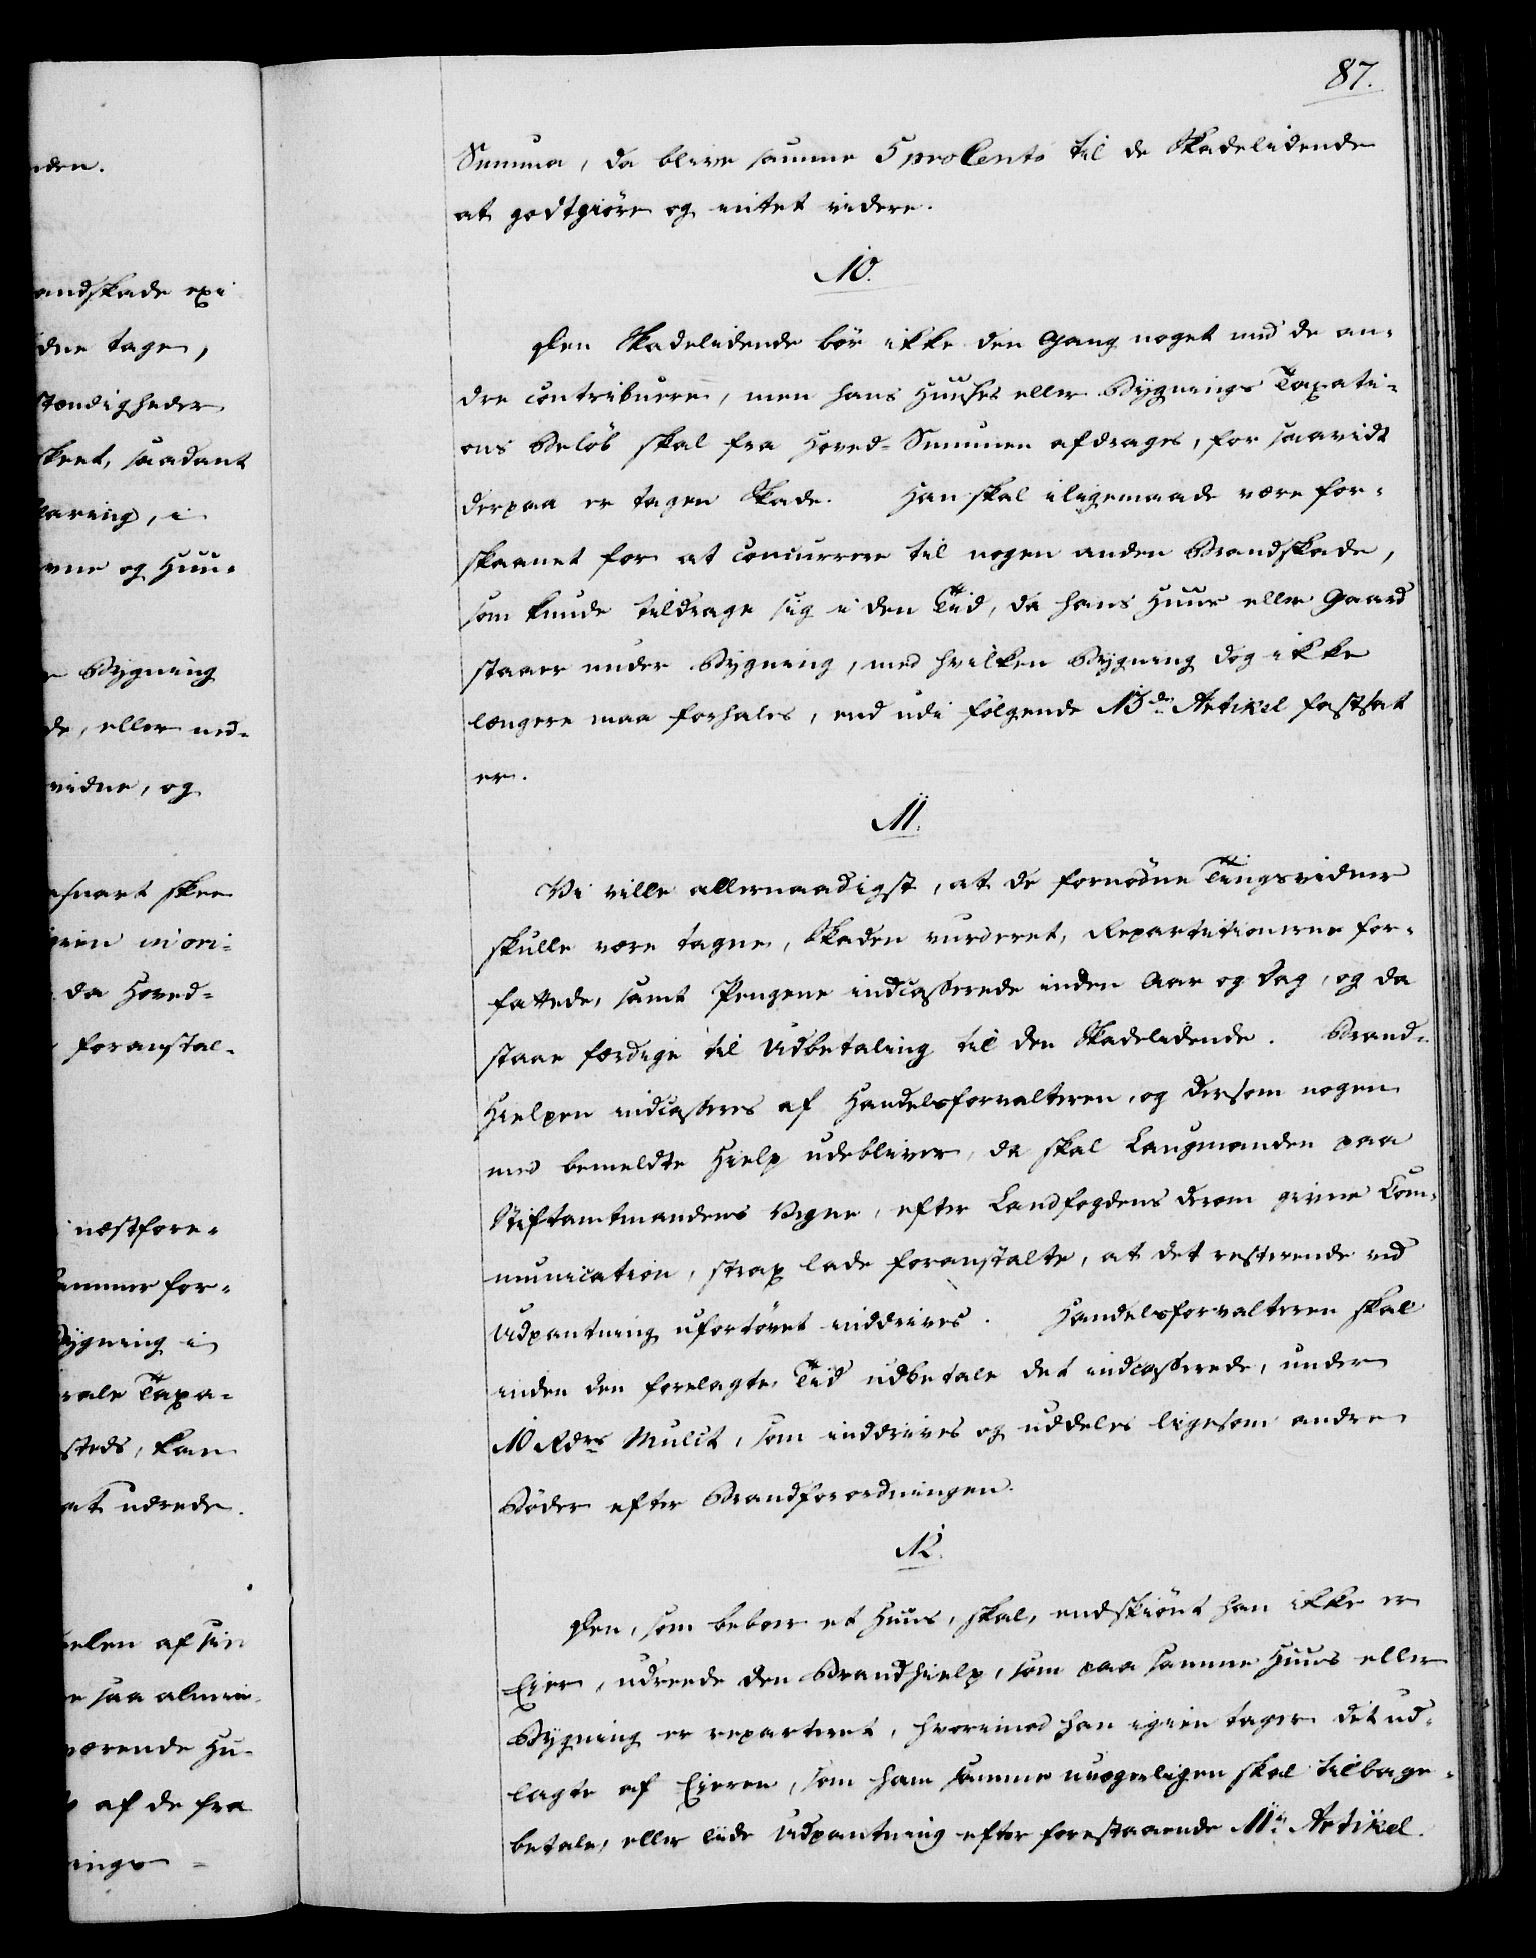 87.
Summa, da blive samme 5 pro Cento til de Skadelidende
at godtgiöre og intet videre.
10.
Den Skadelidende bör ikke den Gang noget med de an-
dre contribuere, men hans Huuses eller Bygnings Taxati-
ons Belöb skal fra Hoved-Summen afdrages, for saavidt
derpaa er tagen Skade. Han skal iligemaade være for-
skaanet for at concurrere til nogen anden Brandskade,
som kunde tildrage sig i den Tiid, da hans Huus eller Gaard
staaer under Bygning, med hvilken Bygning dog ikke
længere maa forhales, end udi fölgende 13de Artikel fastsat
er.
11.
Vi ville allernaadigst, at de fornödne Tingsvidner
skulle være tagne, Skaden vurderet, Repartitionerne for-
fattede, samt Pengene indcasserede inden Aar og Dag, og da
staae færdige til Udbetaling til den Skadelidende. Brand-
Hielpen indcasseres af Handelsforvalteren, og dersom nogen
med bemeldte Hielp udebliver, da skal Laugmanden paa
Stiftamtmandens Vegne, efter Landfogdens derom givne Com-
munication, strax lade foranstalte, at det resterende ved
Udpantning ufortövet inddrives. Handelsforvalteren skal
inden den forelagte Tid udbetale det indcasserede, under
10 Rdrs Mulct, som inddrives og uddeles ligesom andre
Böder efter Brandforordningen.
12.
Den, som beboer et Huus, skal, endskiönt han ikke er
Eier, udreede den Brandhielp, som paa samme Huus eller
Bygning er reparteret, hvorimod han igien tager det ud-
lagte af Eieren, som ham samme uvægerligen skal tilbage-
betale, eller lide Udpantning efter forestaaende 11te Artikel.
nden.
andskade exi
dne tagen,
stændigheder
skeet, saadant
laring, i
vne og Huu-
Bygning
de, eller ned-
vidne, og
asnart skee
da Hoved-
foranstal-
næstfore-
sammer for-
Bygning i
rale Taxa-
steds, kan
at udrede.
delen af sin
e saa almin-
værende Hu-
af de fra